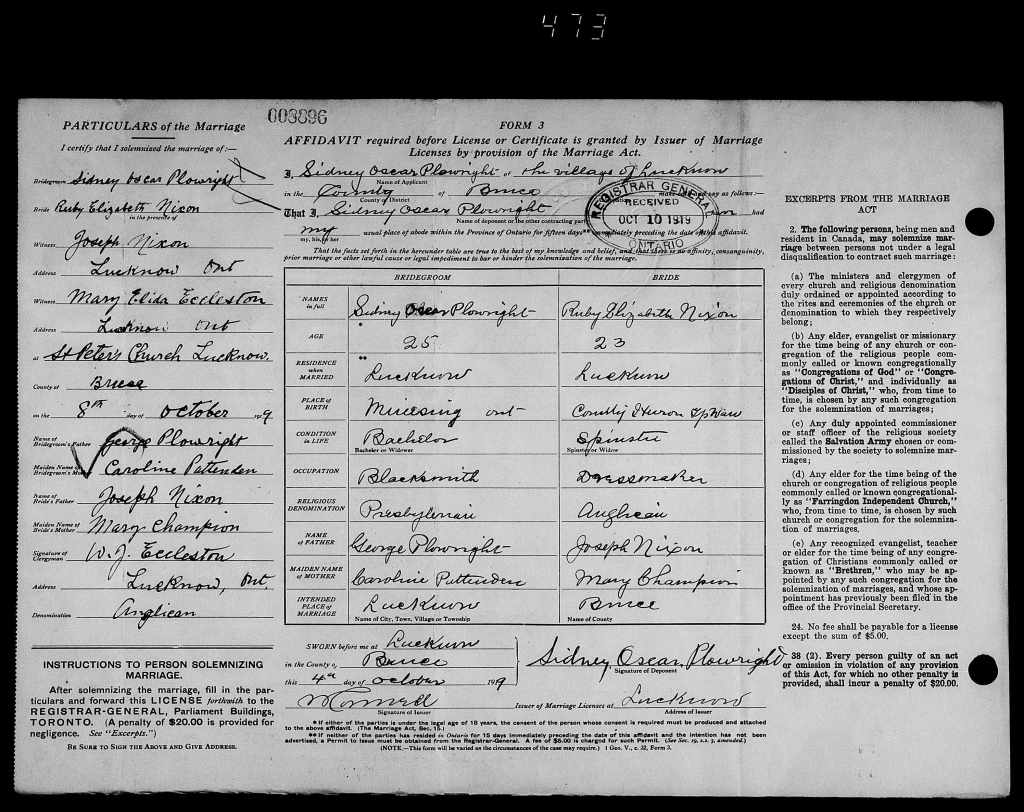 473
003896
PARTICULARS of the Marriage
I certify that I solemnized the marriage of:—
Bridegroom Sidney Oscar Plowright
Bride Ruby Elizabeth Nixon
in the presence of
Witness Joseph Nixon
Address Lucknow Ont
Witness Mary Elida Eccleston
Address Lucknow Ont
at St Peter's Church Lucknow.
County of Bruce
on the 8th day of October 1919
Name of Bridegroom's Father George Plowright
Maiden Name of Bridegroom's Mother Caroline Pattenden
Name of Bride's Father Joseph Nixon
Maiden Name of Bride's Mother Mary Champion
Signature of Clergyman W. J. Eccleston
Address Lucknow, Ont.
Denomination Anglican
INSTRUCTIONS TO PERSON SOLEMNIZING
MARRIAGE.
After solemnizing the marriage, fill in the par-
ticulars and forward this LICENSE forthwith to the
REGISTRAR-GENERAL, Parliament Buildings,
TORONTO. (A penalty of $20.00 is provided for
negligence. See "Excerpts.")
BE SURE TO SIGN THE ABOVE AND GIVE ADDRESS.
FORM 3
AFFIDAVIT required before License or Certificate is granted by Issuer of Marriage
Licenses by provision of the Marriage Act.
I, Sidney Oscar Plowright of the village of Lucknow
Name of Applicant
in the County of Bruce make oath and say as follows:—
County or District
That I, Sidney Oscar Plowright had
Name of deponent or the other contracting party
my usual place of abode within the Province of Ontario for fifteen days** immediately preceding the date of this affidavit.
my, his, or her
That the facts set forth in the hereunder table are true to the best of my knowledge and belief, and that there is no affinity, consanguinity,
prior marriage or other lawful cause or legal impediment to bar or hinder the solemnization of the marriage.
REGISTRAR GENERAL
RECEIVED
OCT 10 1919
ONTARIO
BRIDEGROOM BRIDE
NAMES in full Sidney Oscar Plowright Ruby Elizabeth Nixon
AGE * 25 23
RESIDENCE when MARRIED ** Lucknow Lucknow
PLACE OF BIRTH Minesing ont County Huron Tp Waw
CONDITION IN LIFE Bachelor Spinster
Bachelor or Widower Spinster or Widow
OCCUPATION Blacksmith Dressmaker
RELIGIOUS DENOMINATION Presbyterian Anglican
NAME OF FATHER George Plowright Joseph Nixon
MAIDEN NAME OF MOTHER Caroline Puttenden Mary Champion
INTENDED PLACE OF MARRIAGE Lucknow Bruce
Name of City, Town, Village or Township Name of County
SWORN before me at Lucknow
in the County of Bruce
this 4th day of October 1919
Sidney Oscar Plowright
Signature of Deponent
Signature of Issuer
Issuer of Marriage Licenses at Lucknow
Address of Issuer
* If either of the parties is under the legal age of 18 years, the consent of the person whose consent is required must be produced and attached
to the above affidavit. (The Marriage Act, Sec. 15.)
** If neither of the parties has resided in Ontario for 15 days immediately preceding the date of this affidavit and the intention has not been
advertised, a Permit to Issue must be obtained from the Registrar-General. A fee of $5.00 is charged for such Permit. (See Sec. 19, s.s. 2, amended.)
(NOTE.—This form will be varied as the circumstances of the case may require.) 1 Geo. V., c. 32, Form 3.
EXCERPTS FROM THE MARRIAGE
ACT
2. The following persons, being men and
resident in Canada, may solemnize mar-
riage between persons not under a legal
disqualification to contract such marriage:
(a) The ministers and clergymen of
every church and religious denomination
duly ordained or appointed according to
the rites and ceremonies of the church or
denomination to which they respectively
belong;
(b) Any elder, evangelist or missionary
for the time being of any church or con-
gregation of the religious people com-
monly called or known congregationally
as "Congregations of God" or "Congre-
gations of Christ," and individually as
"Disciples of Christ," who, from time to
time, is chosen by any such congregation
for the solemnization of marriages;
(c) Any duly appointed commissioner
or staff officer of the religious society
called the Salvation Army chosen or com-
missioned by the society to solemnize mar-
riages;
(d) Any elder for the time being of the
church or congregation of religious people
commonly called or known congregational-
ly as "Farringdon Independent Church,"
who, from time to time, is chosen by such
church or congregation for the solemniza-
tion of marriages.
(e) Any recognized evangelist, teacher
or elder for the time being of any congre-
gation of Christians commonly called or
known as "Brethren," who may be ap-
pointed by any such congregation for the
solemnization of marriages, and whose
appointment has previously been filed in the
office of the Provincial Secretary.
24. No fee shall be payable for a license
except the sum of $5.00.
38 (2). Every person guilty of an act
or omission in violation of any provision
of this Act, for which no other penalty is
provided, shall incur a penalty of $20.00.